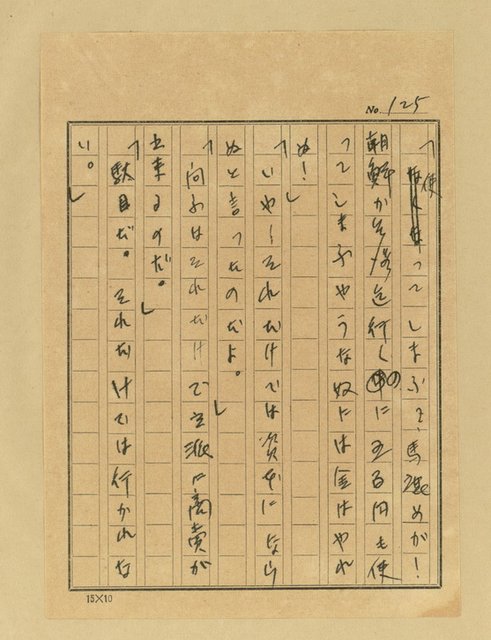 No. 125
「使つてしまふと、馬鹿めが！
朝鮮から京城迄行くのに五百円も使
つてしまふやうな奴には金はやれ
ぬ！」
「いや！それだけでは資本になら
ぬと言つたのだよ。」
「向ふはそれだけで立派に商売が
出来るのだ。」
「駄目だ。それだけでは行かれな
い。」
15×10